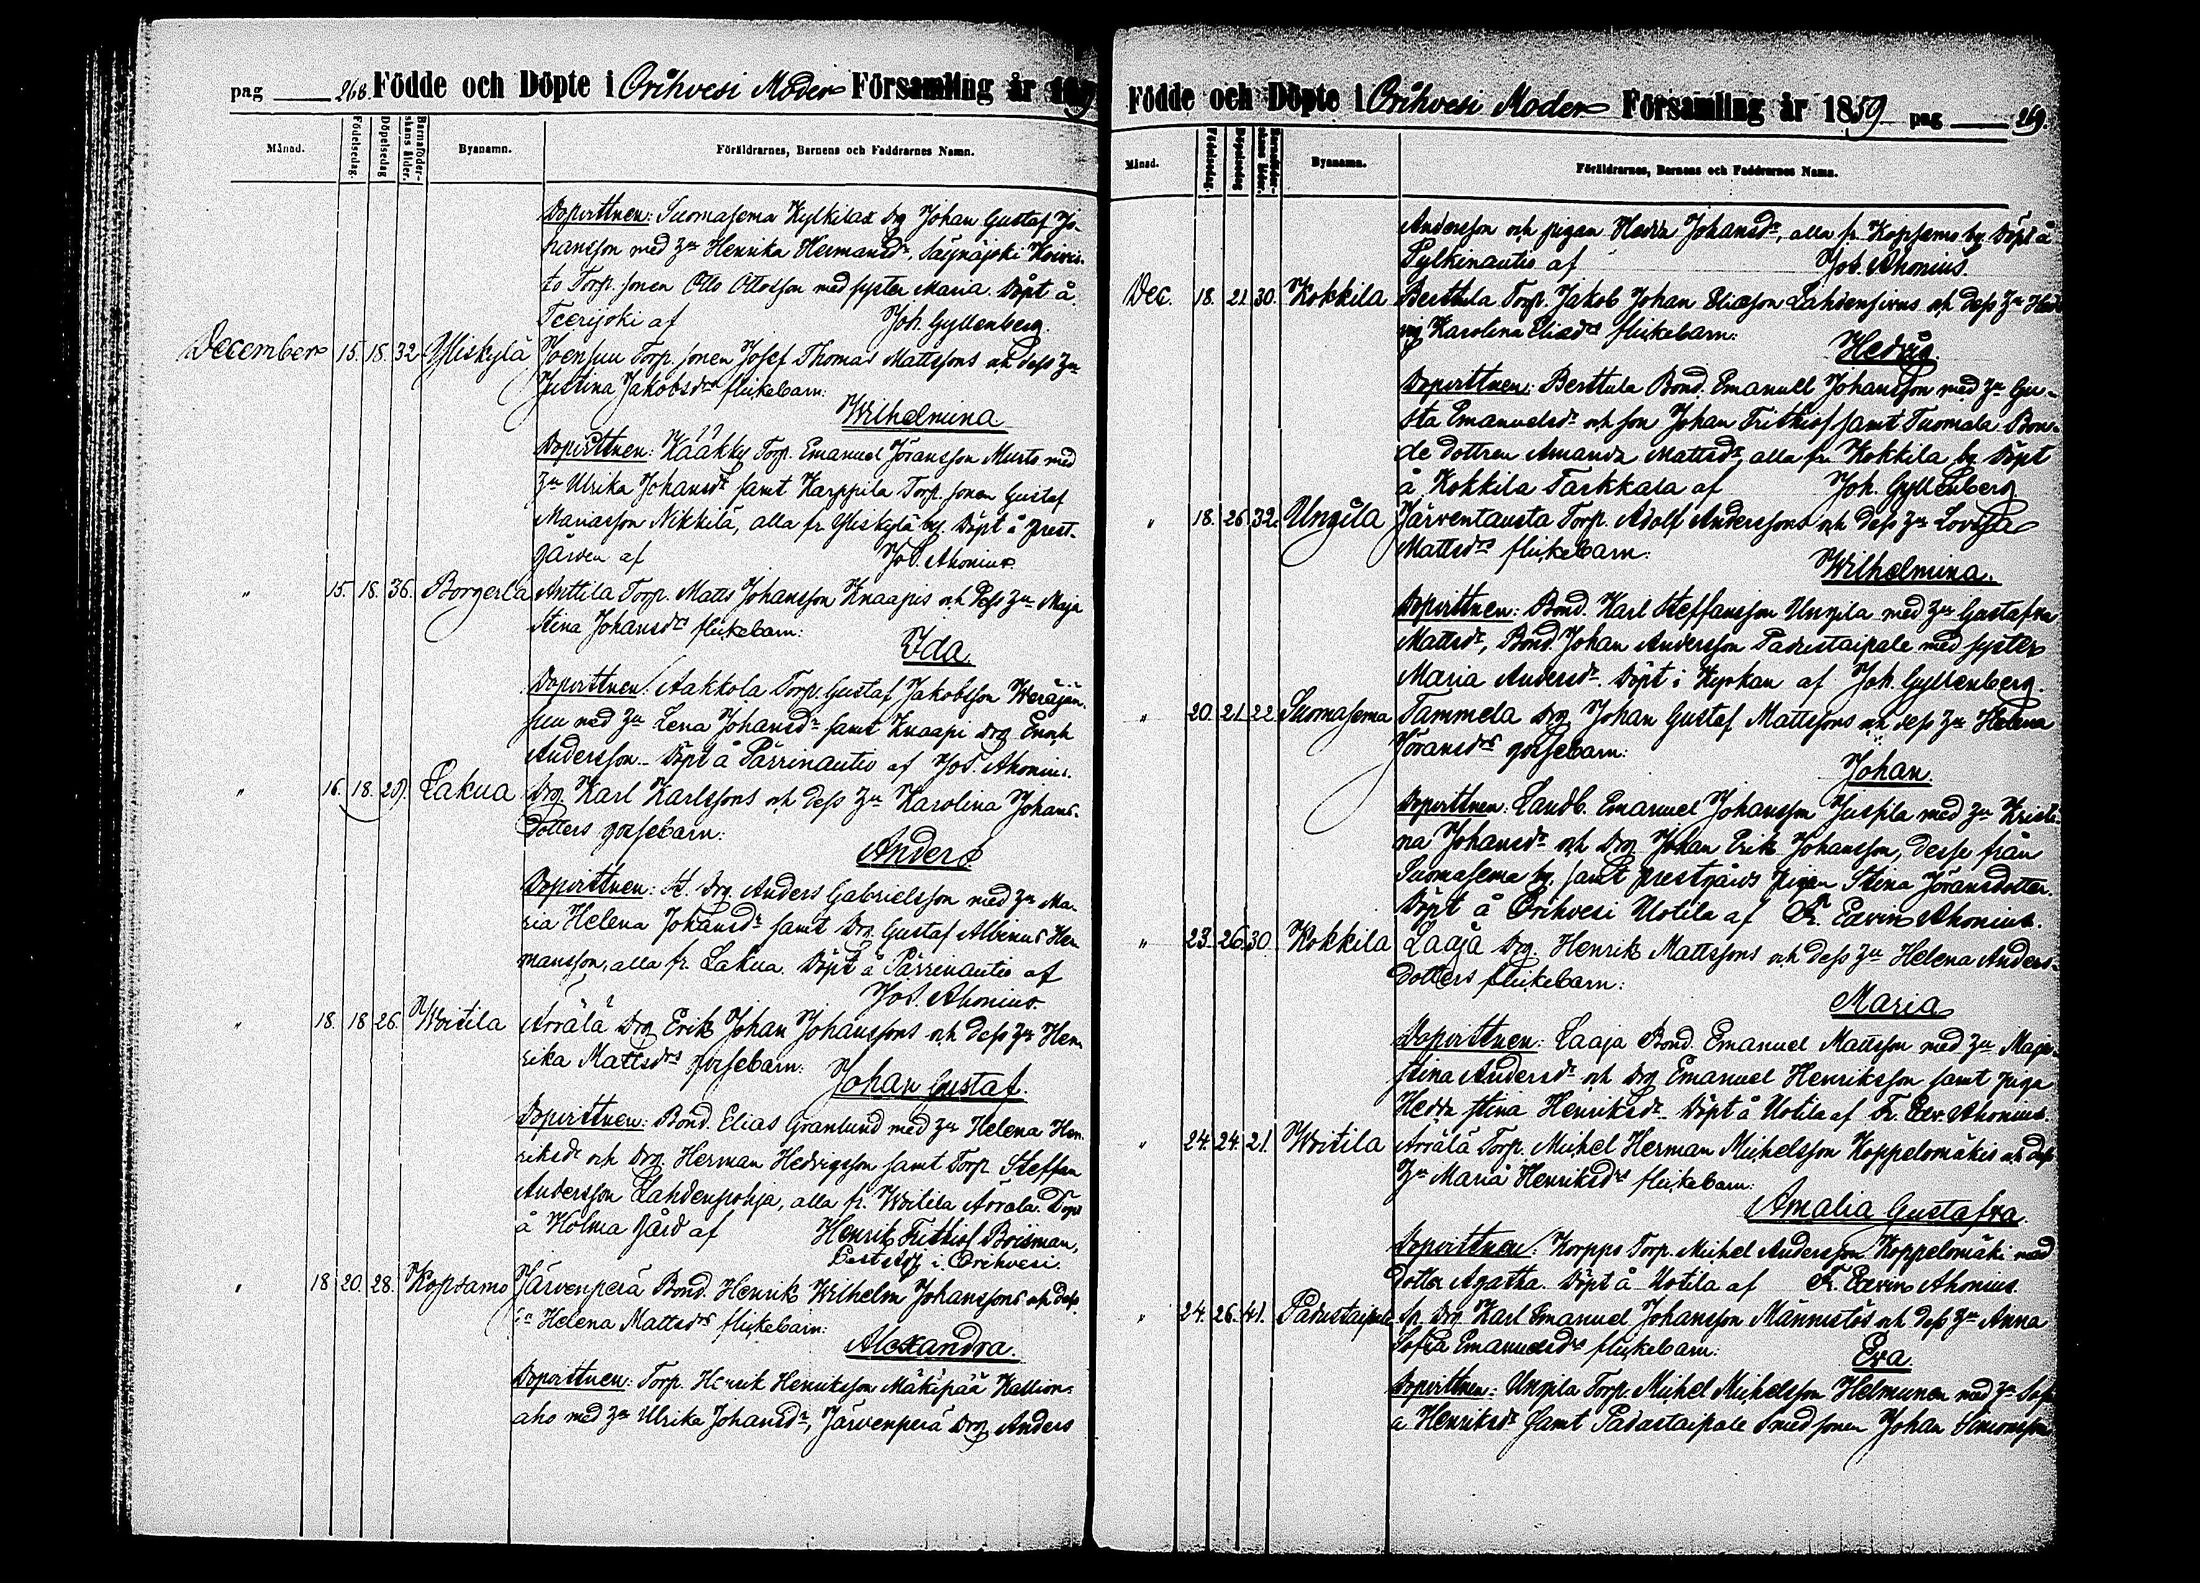 pag 268. Födde och Döpte i Orihvesi Moder Församling år 1859
Månad. Födelsedag. Döpelsedag Barnaföder- skans ålder. Bynamn. Föräldrarnes, Barnens och Faddrarnes Namn.
Dopvittnen: Suomasema Kylkilax Drg Johan Gustaf Jo-
hansson med Hu Henrika Hermansdr, Säynäjoki Koivis-
to Torp. sonen Otto Ottosson med syster Maria. Döpt å
Teerijoki af Joh. Gyllenberg.
December 15. 18. 32. Yliskylä Joensuu Torp. sonen Josef Thomas Mattssons och dess Hu
Justina Jakobsdrs flickebarn:
Wilhelmina
Dopvittnen: Kääkky Torp. Emanuel Jöransson Murto med
Hu Ulrika Johansdr samt Karppila Torp. sonen Gustaf
Mariasson Nikkilä, alla fr. Yliskylä by. Döpt å prest-
gården af Jos. Ahonius.
" 15. 18. 36. Borgerla Anttila Torp. Matts Johansson Knaapis och dess Hu Maja
Stina Johansdrs flickebarn:
Ida.
Dopvittnen: Aakkola Torp. Gustaf Jakobsson Weräjän-
suu med Hu Lena Johansdr samt Knaapi Drg Enoch
Andersson. Döpt å Pärrinautio af Jos. Ahonius.
" 16. 18. 29. Lakua Drg. Karl Karlssons och dess Hu Karolina Johans-
dotters gossebarn:
Anders
Dopvittnen: St. Drg. Anders Gabrielsson med Hu Ma-
ria Helena Johansdr samt Drg. Gustaf Albinus Her-
mansson, alla fr. Lakua. Döpt å Pärrinautio af
Jos. Ahonius.
" 18. 18 26. Woitila Arrälä Drg Erik Johan Johanssons och dess Hu Hen-
rika Mattsdrs gossebarn:
Johan Gustaf.
Dopvittnen: Bond. Elias Granlund med Hu Helena Hen-
riksdr och Drg. Herman Hedvigsson samt Torp. Steffan
Andersson Lahdenpohja, alla fr. Woitila Arrälä. Döpt
å Holma gård af Henrik Frithiof Boisman,
Past. Adj. i Orihvesi.
" 18 20. 28. Kopsamo Järvenperä Bond. Henrik Wilhelm Johanssons och dess
Hu Helena Mattsdrs flickebarn:
Alexandra.
Dopvittnen: Torp. Henrik Henriksson Mäkipää Kallion-
aho med Hu Ulrika Johansdr, Järvenperä Drg Anders
Födde och Döpte i Orihvesi Moder Församling år 1859 pag 269.
Månad. Födelsedag. Döpelsedag Barnaföder- skans ålder. Bynamn. Föräldrarnes, Barnens och Faddrarnes Namn.
Andersson och pigan Hedda Johansdr, alla fr. Kopsamo by. Döpt å
Pylkinautio af Jos. Ahonius.
Dec. 18. 21 30. Kokkila Berttula Torp. Jakob Johan Eliasson Lahdensivus och dess Hu Hed-
vig Karolina Eliasdrs flickebarn:
Hedvig.
Dopvittnen: Berttula Bond. Emanuel Johansson med Hu Gu-
sta Emanuelsdr och son Johan Frithiof samt Tuomala Bon-
de dottren Amanda Mattsdr alla fr. Kokkila by. Döpt
å Kokkila Tarkkala af Joh. Gyllenberg
" 18. 26 32. Ungila Järventausta Torp. Adolf Anderssons och dess Hu Lovisa
Mattsdrs flickebarn:
Wilhelmina.
Dopvittnen: Bond. Karl Steffansson Ungila med Hu Gustafva
Mattsdr, Bond. Johan Andersson Padustaipale med syster
Maria Andersdr. Döpt i Kyrkan af Joh. Gyllenberg.
" 20. 21 22 Suomasema Tammela Drg Johan Gustaf Mattssons och dess Hu Helena
Jöransdrs gossebarn:
Johan.
Dopvittnen: Landb. Emanuel Johansson Juspila med Hu Kristi-
na Johansdr och Drg. Johan Erik Johansson, desse från
Suomasema by. samt prestgårds pigan Stina Jöransdotter.
Döpt å Orihvesi Uotila af Fr. Edvin Ahonius.
" 23. 26 30. Kokkila Laaja Drg. Henrik Mattssons och dess Hu Helena Anders-
dotters flickebarn:
Maria
Dopvittnen: Laaja Bond. Emanuel Mattsson med Hu Maja
Stina Andersdr och Drg Emanuel Henriksson samt piga
Hedda Stina Henriksdr. Döpt å Uotila af Fr. Edv. Ahonius.
" 24. 24. 21. Woitila Arrälä Torp. Michel Herman Michelsson Koppelomäkis och dess
Hu Maria Henriksdrs flickebarn:
Amalia Gustafva.
Dopvittnen: Korppo Torp. Michel Andersson Koppelomäki med
dotter Agatha. Döpt å Uotila af Fr. Edvin Ahonius.
" 24. 26. 41. Padustaipale Sp. Drg Karl Emanuel Johansson Männistös och dess Hu Anna
Sofia Emanuelsdrs flickebarn:
Eva
Dopvittnen: Ungila Torp. Michel Michelsson Helmunen med Hu Sofi-
a Henriksdr samt Padustaipale smedsonen Johan Simonsson